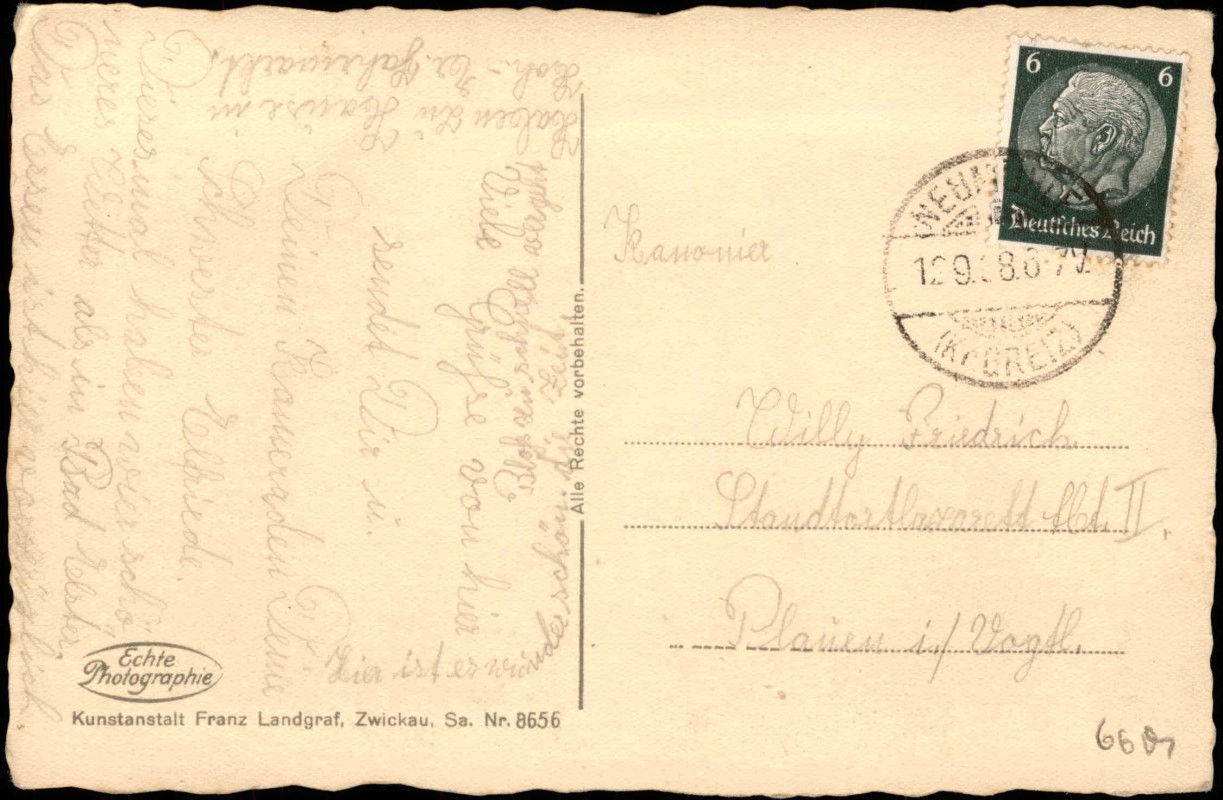 Viele Grüße von hier
sendet Dir u.
Deinem Kameraden Deine
Schwester Elfriede.
Dieses mal haben wir schö-
neres Wetter als in Bad Elster,
Das Essen ist hier vorzüglich.
Hier ist es wunderschön, die Zeit
Haben zu Hause in
Jahrmarkt.
Alle Rechte vorbehalten.
Echte
Photographie
Kunstanstalt Franz Landgraf, Zwickau, Sa. Nr. 8656
6 6
Deutsches Reich
12.9.38.6-7
(KR GREIZ)
Kanonier
Willy Friedrich
Standtortlazarett Abt. II,
Plauen i./Vogtl.